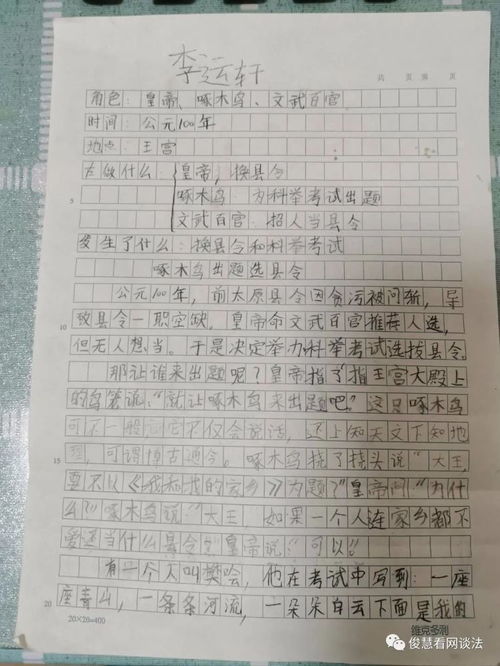 李运轩
共 页 第 页
角色：皇帝、啄木鸟、文武百官
时间：公元100年
地点：王宫
在做什么：皇帝：换县令
啄木鸟：为科举考试出题
文武百官：招人当县令
5
发生了什么：换县令和科举考试
啄木鸟出题选县令
公元100年，前太原县令因贪污被问斩，导
致县令一职空缺。皇帝命文武百官推荐人选，
10
但无人想当。于是决定举办科举考试选拔县令。
那让谁来出题呢？皇帝指了指王宫大殿上
的鸟笼说："就让啄木鸟来出题吧"这只啄木鸟
可不一般，它不仅会说话，还上知天文下知地
理，可谓博古通今。啄木鸟挠了挠头说"大王，
15
要不以《我和我的家乡》为题？"皇帝问"为什
么？"啄木鸟说"大王，如果一个人连家乡都不
爱还当什么县令？"皇帝说"可以！"
有一个人叫樊哙，他在考试中写到：一座
座青山，一条条河流，一朵朵白云下面是我的
20
20×20=400
维克多利
俊慧看网谈法